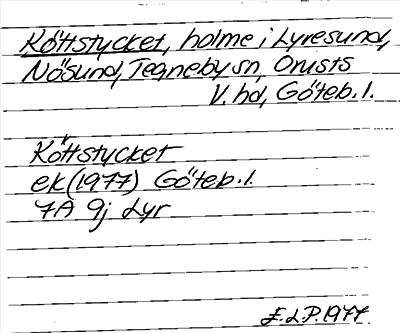 Köttstycket, holme i Lyresund,
Nösund, Tegneby sn, Orusts
V. hd, Göteb. l.
Köttstycket
ek (1977) Göteb. l.
7A 9j Lyr
E.L.P. 1977